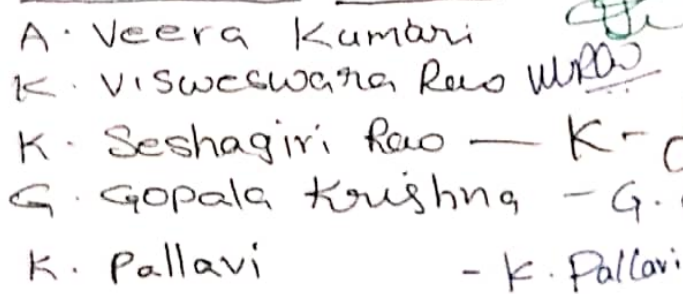 A. Veera Kumari
K. Visweswara Rao
K. Seshagiri Rao — K-
G. Gopala Krishna - G.
K. Pallavi - K. Pallavi